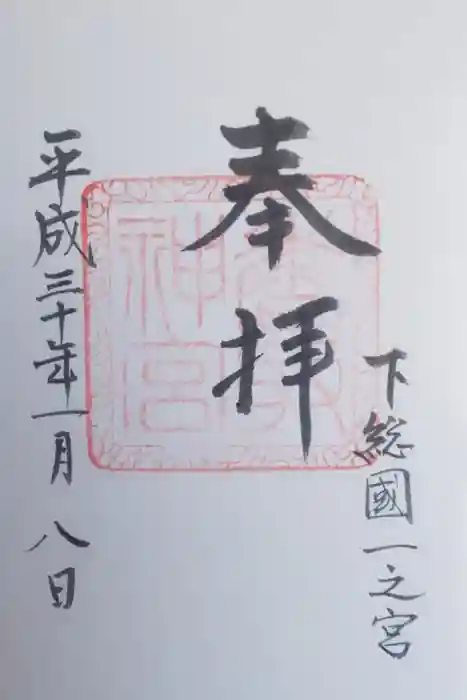 下総國一之宮
奉拝
香取神宮
平成三十年一月八日